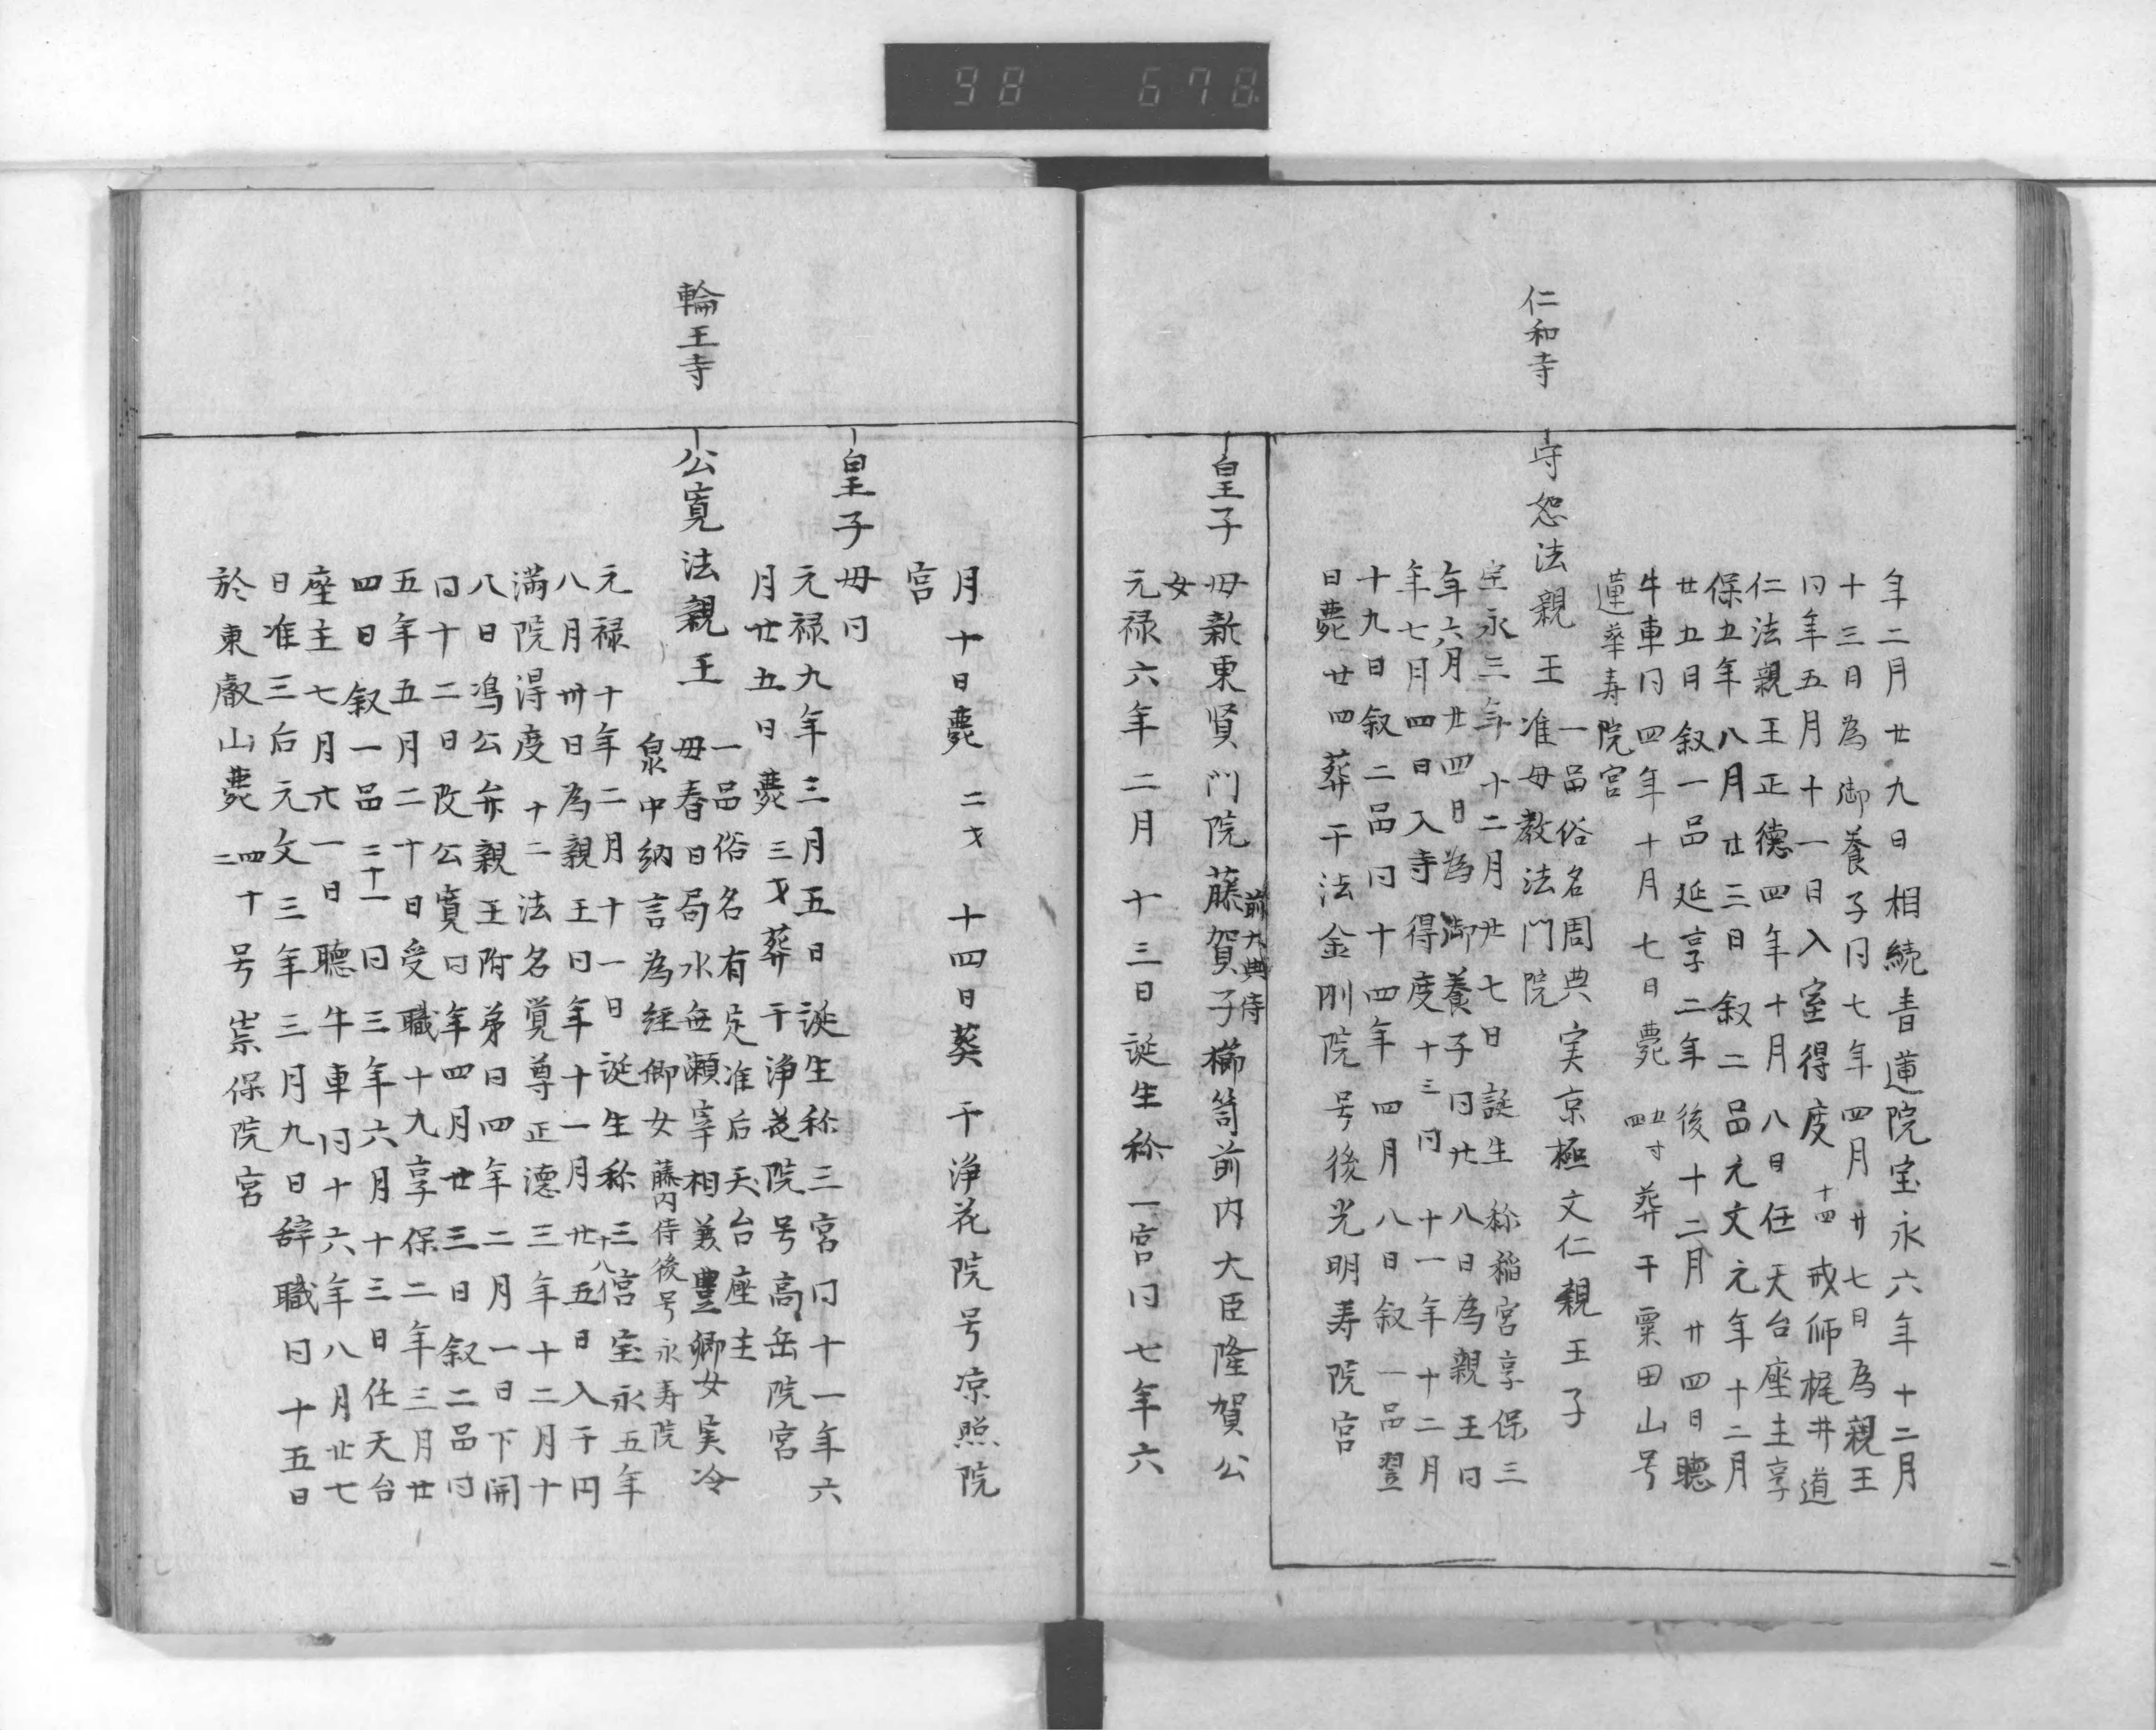 98 678
年二月廿九日相続青蓮院宝永六年十二月
十三日為御養子冃七年四月廿七日為親王
冃年五月十一日入室得度十四戒師梶井道
仁法親王正徳四年十月八日任天台座主享
保五年八月廿三日叙二品元文元年十二月
廿五日叙一品延享二年後十二月廿四日聴
牛車冃四年十月七日薨 葬干粟田山号
蓮華寿院宮
仁和寺
守恕法親王
一品俗名周典 実京極文仁親王子
准母敷法門院
宝永三年十二月廿七日誕生称稲宮享保三
年六月廿四日為御養子冃廿八日為親王冃
年七月四日入寺得度十三冃十一年十二月
十九日叙二品冃十四年四月八日叙一品翌
日薨廿四葬干法金剛院号後光明寿院宮
皇子 母新東賢門院藤賀子櫛笥前内大臣隆賀公
前大典侍
女
元禄六年二月十三日誕生称一宮冃七年六
月十日薨二才十四日葬干浄花院号凉照院
宮
皇子 母冃
元禄九年三月五日誕生称三宮冃十一年六
月廿五日薨三才葬干浄花院号高岳院宮
輪王寺
公寛法親王
一品俗名有定准后天台座主
母春日局水無瀬宰相兼豊卿女実冷
泉中納言為経卿女 藤内侍後号永寿院
元禄十年二月十一日誕生称三宮宝永五年
八月卅日為親王冃年十一月廿五日入干円
十八
満院得度十二法名覚尊正徳三年十二月十
八日為公弁親王附弟冃四年二月一日下関
冃十二日改公寛冃年四月廿三日叙二品冃
五年五月二十日受職十九享保二年三月廿
四日叙一品二十一冃三年六月十三日任天台
座主七月六一日聴牛車冃十六年八月廿七
日准三后元文三年三月九日辞職冃十五日
於東叡山薨四十二号崇保院宮